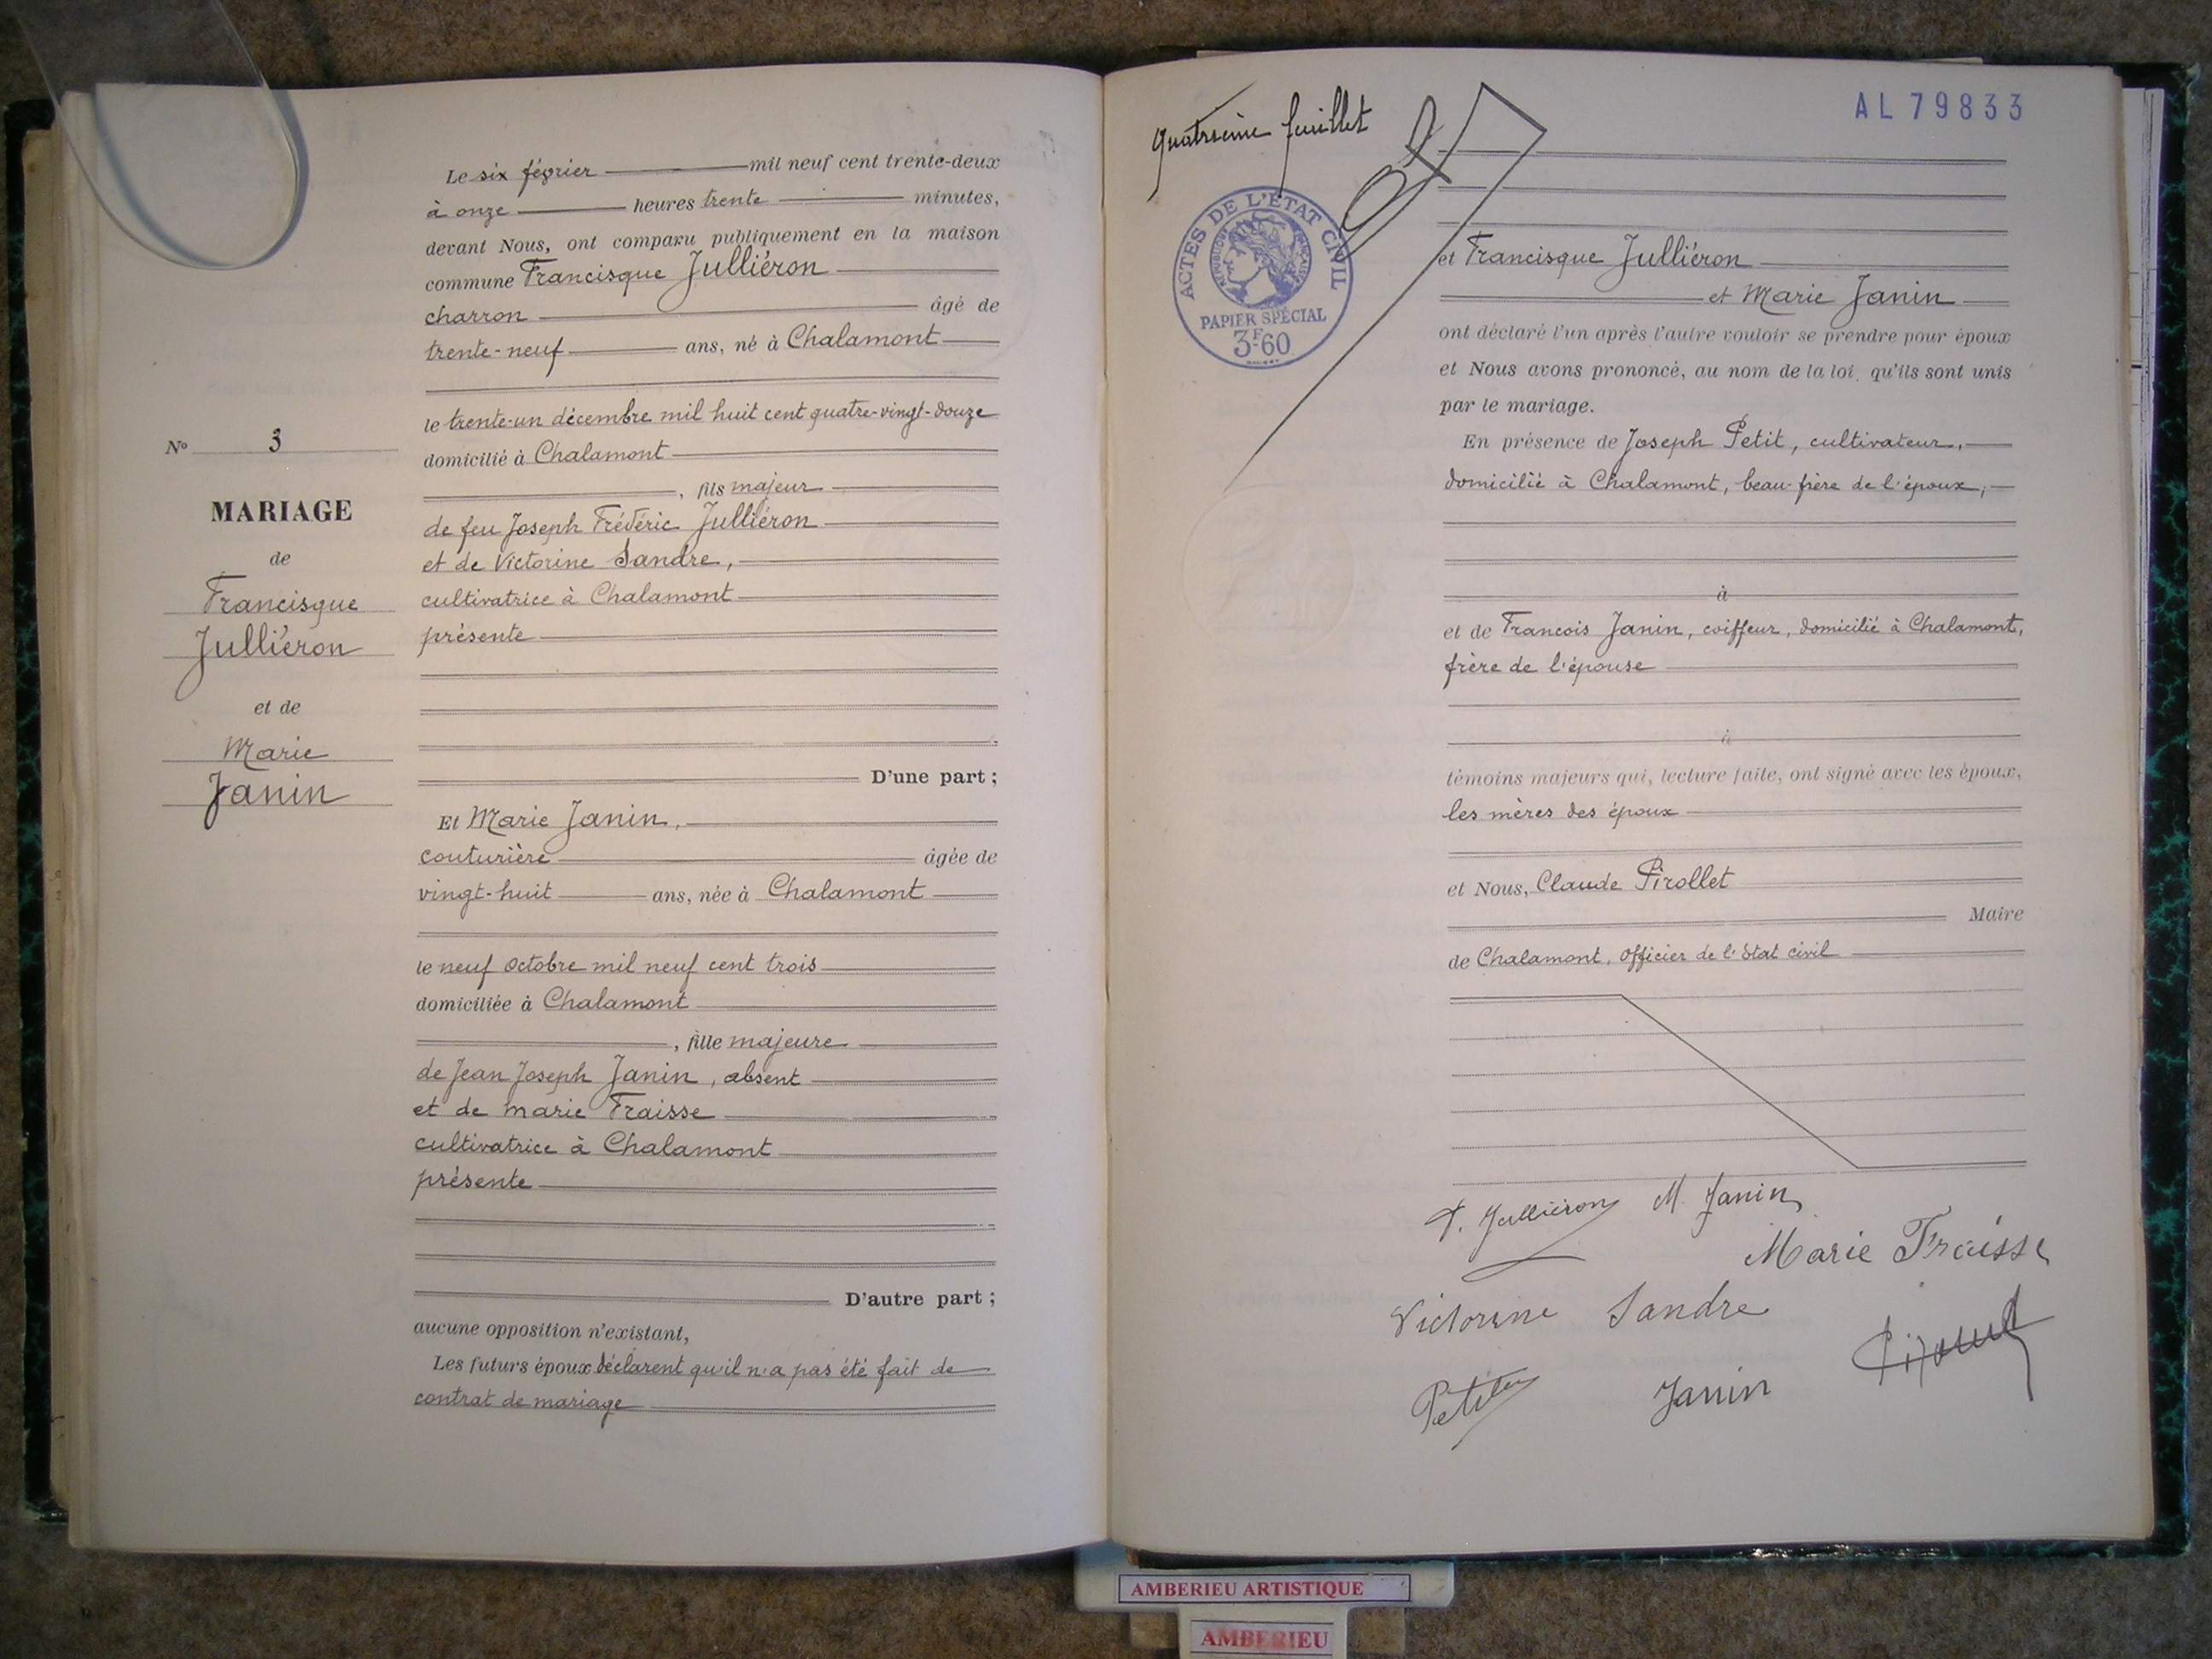 Le six février mil neuf cent trente-deux
à onze heures trente minutes,
devant Nous, ont comparu publiquement en la maison
commune Francisque Julliéron
charron âgé de
trente-neuf ans, né à Chalamont
le trente-un décembre mil huit cent quatre-vingt-douze
domicilié à Chalamont
, fils majeur
de feu Joseph Frédéric Julliéron
et de Victorine Sandre,
cultivatrice à Chalamont
présente
D'une part ;
Et Marie Janin,
couturière âgée de
vingt-huit ans, née à Chalamont
le neuf octobre mil neuf cent trois
domiciliée à Chalamont
, fille majeure
de Jean Joseph Janin, absent
et de marie Fraisse
cultivatrice à Chalamont
présente
D'autre part ;
aucune opposition n'existant,
Les futurs époux déclarent qu'il n'a pas été fait de
contrat de mariage
N° 3
MARIAGE
de
Francisque
Julliéron
et de
Marie
Janin
quatrième feuillet
AL 79833
ACTES DE L'ÉTAT CIVIL
RÉPUBLIQUE FRANÇAISE
PAPIER SPÉCIAL
3F60
et Francisque Julliéron
et Marie Janin
ont déclaré l'un après l'autre vouloir se prendre pour époux
et Nous avons prononcé, au nom de la loi, qu'ils sont unis
par le mariage.
En présence de Joseph Petit, cultivateur,
domicilié à Chalamont, beau-frère de l'époux,
à
et de Francois Janin, coiffeur, domicilié à Chalamont,
frère de l'épouse
à
témoins majeurs qui, lecture faite, ont signé avec les époux,
les mères des époux
et Nous, Claude Pirollet
Maire
de Chalamont, officier de l'état civil
F. Julliéron M. Janin
Marie Fraisse
Victorine Sandre
Petit Janin
AMBERIEU ARTISTIQUE
AMBERIEU